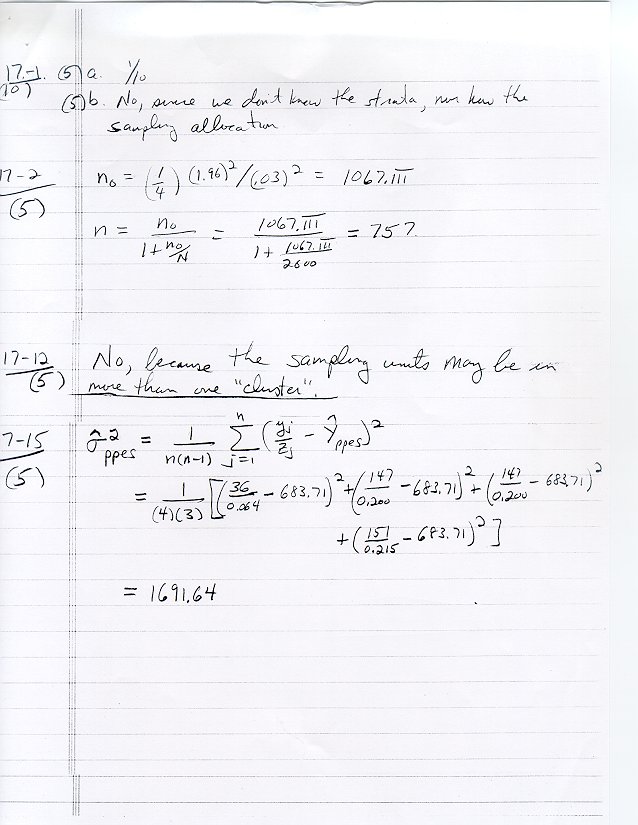 17-1. (5) a. 1/10
(10)
(5) b. No, since we don't know the strata, nor how the
sampling allocation
17-2 n₀ = (1/4) (1.96)² / (.03)² = 1067.111
(5)
n = n₀ / (1 + n₀/N) = 1067.111 / (1 + 1067.111/2600) = 757.
17-12 No, because the sampling units may be in
(5) more than one "cluster".
7-15 σ̂²ppes = 1/(n(n-1)) Σⁿⱼ₌₁ (yⱼ/zⱼ - Ŷppes)²
(5) = 1/((4)(3)) [(36/0.064 - 683.71)² + (147/0.200 - 683.71)² + (147/0.200 - 683.71)²
+ (151/0.215 - 683.71)²]
= 1691.64